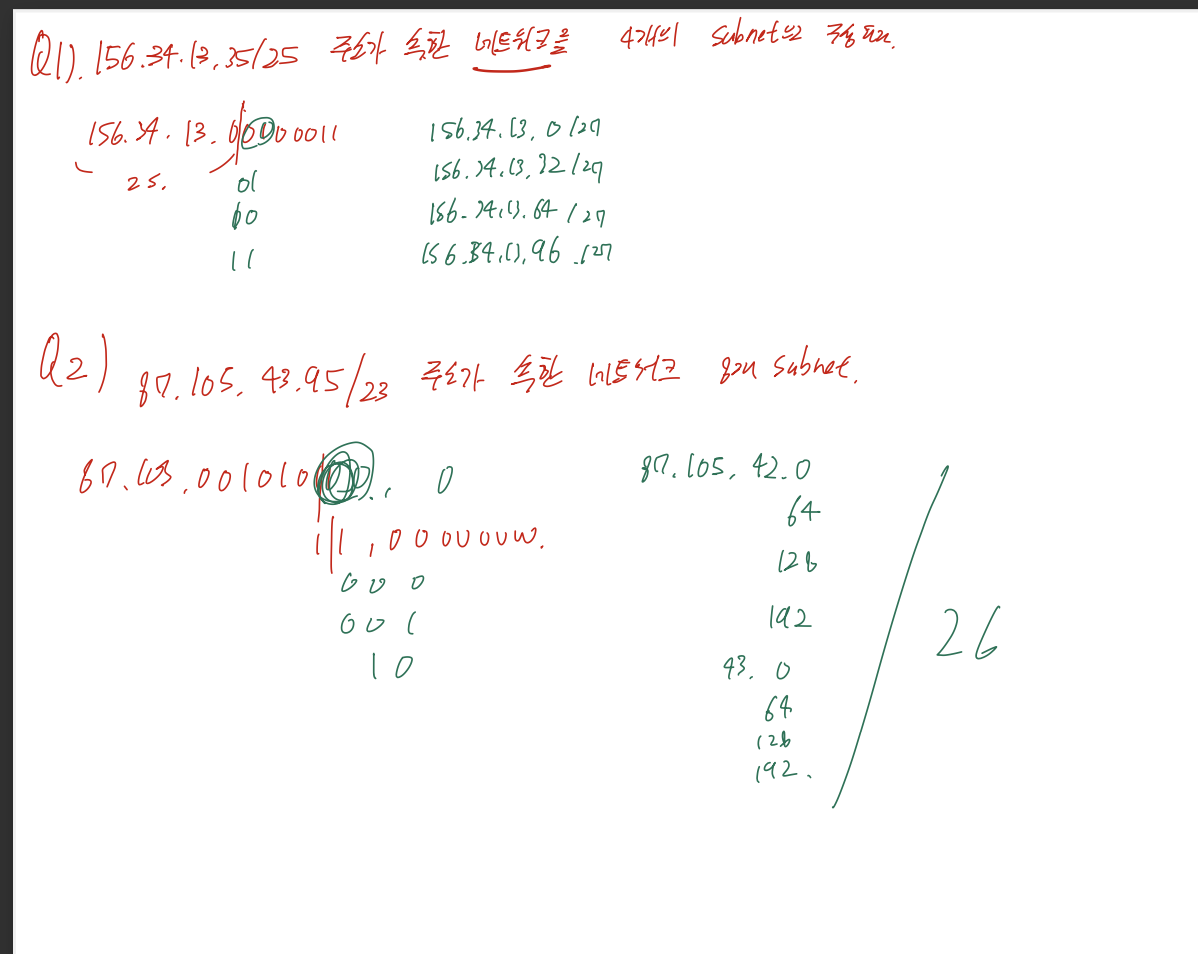 Q1). 156.34.13.35/25 주소가 속한 네트워크를 4개의 subnet으로
156.34.13.00000011
25.
01
10
11
156.34.13.0/27
156.34.13.32/27
156.34.13.64/27
156.34.13.96/27
Q2) 87.105.43.95/23 주소가 속한 네트워크 8개 subnet.
87.105.0010101 0
11,0000000.
000
001
10
87.105.42.0
64
128
192
43.0
64
128
192.
26